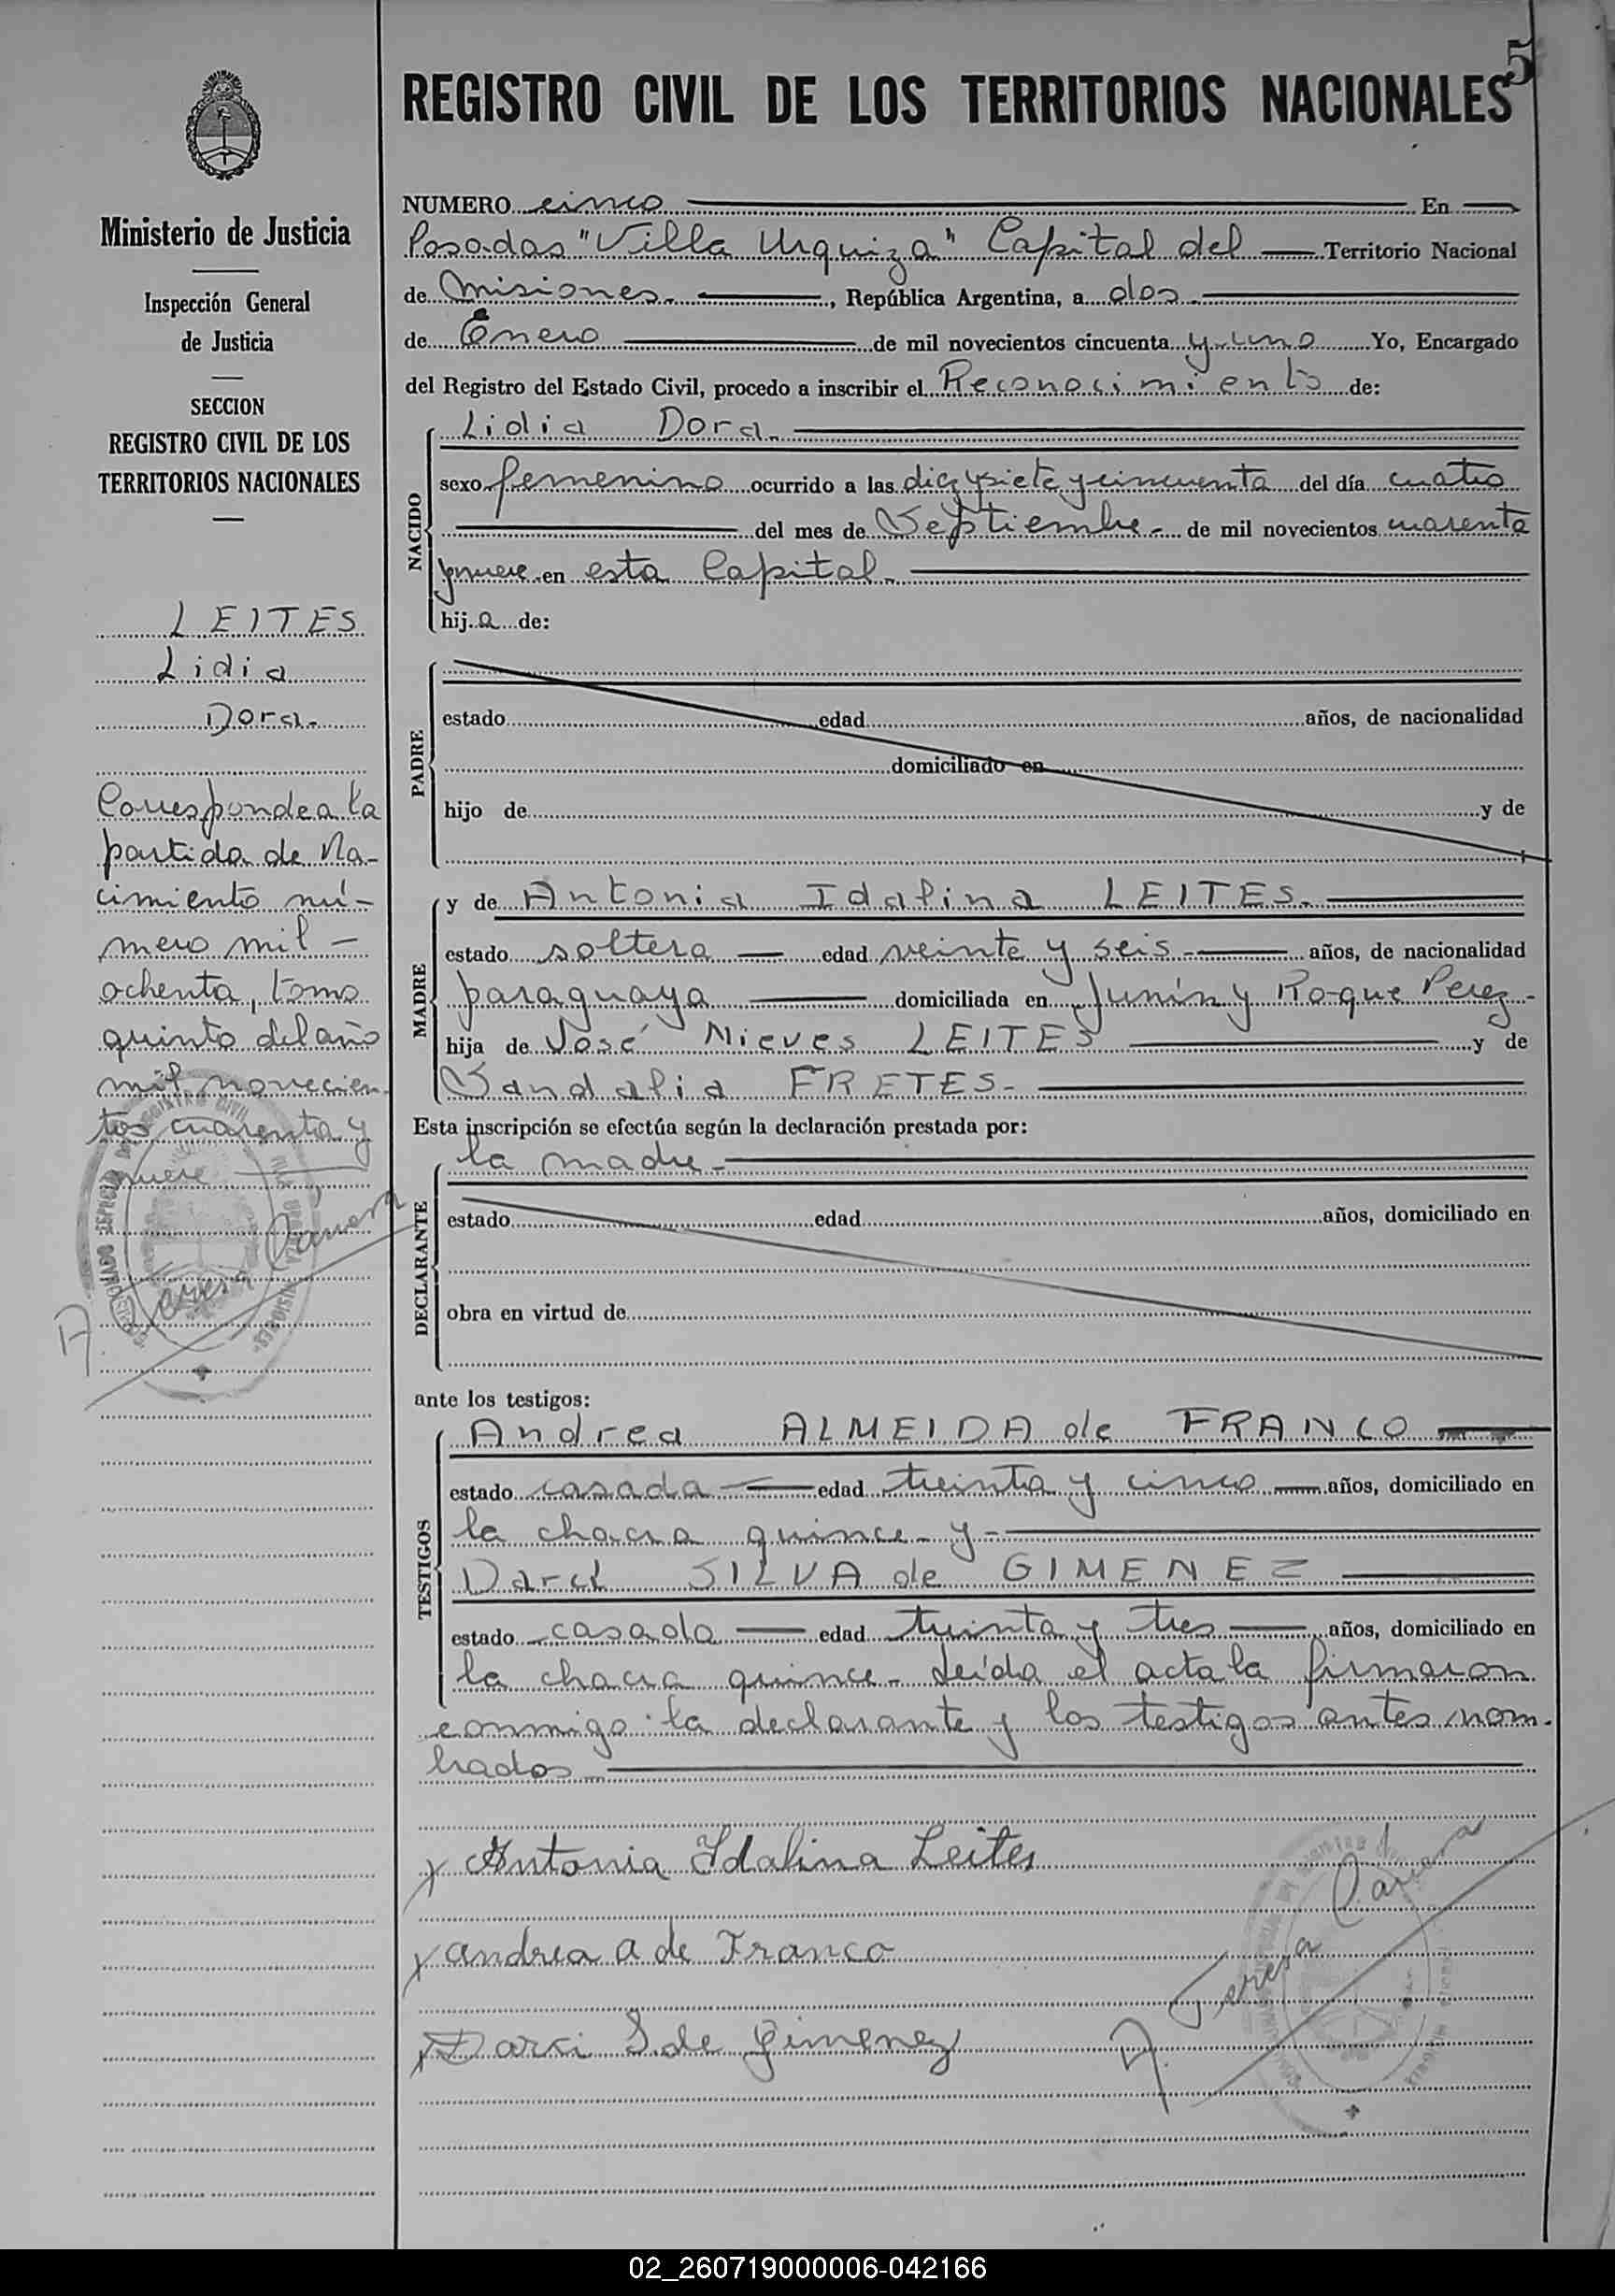 5
REGISTRO CIVIL DE LOS TERRITORIOS NACIONALES
Ministerio de Justicia
Inspección General
de Justicia
SECCION
REGISTRO CIVIL DE LOS
TERRITORIOS NACIONALES
LEITES
Lidia
Dora.
Corresponde a la
partida de Na-
cimiento nú-
mero mil
ochenta, tomo
quinto del año
mil novecien-
tos cuarenta y
nueve
NUMERO cinco En
Posadas "Villa Urquiza" Capital del Territorio Nacional
de Misiones. , República Argentina, a dos
de Enero de mil novecientos cincuenta y uno Yo, Encargado
del Registro del Estado Civil, procedo a inscribir el Reconocimiento de:
NACIDO
Lidia Dora.
sexo femenino ocurrido a las diez y siete y cincuenta del día cuatro
del mes de Septiembre de mil novecientos cuarenta
y nueve en esta Capital.
hij a de:
PADRE
estado edad años, de nacionalidad
domiciliado en
hijo de y de
MADRE
y de Antonia Idalina LEITES.
estado soltera edad veinte y seis años, de nacionalidad
paraguaya domiciliada en Junín y Roque Perez
hija de José Nieves LEITES y de
Sandalia FRETES.
Esta inscripción se efectúa según la declaración prestada por:
DECLARANTE
la madre
estado edad años, domiciliado en
obra en virtud de
ante los testigos:
TESTIGOS
Andrea ALMEIDA de FRANCO
estado casada edad treinta y cinco años, domiciliado en
la chacra quince y
Darci SILVA de GIMENEZ
estado casada edad treinta y tres años, domiciliado en
la chacra quince. Leída el acta la firmaron
conmigo la declarante y los testigos antes nom-
brados
x Antonia Idalina Leites
x Andrea A de Franco
x Darci S. de Gimenez
02_260719000006-042166